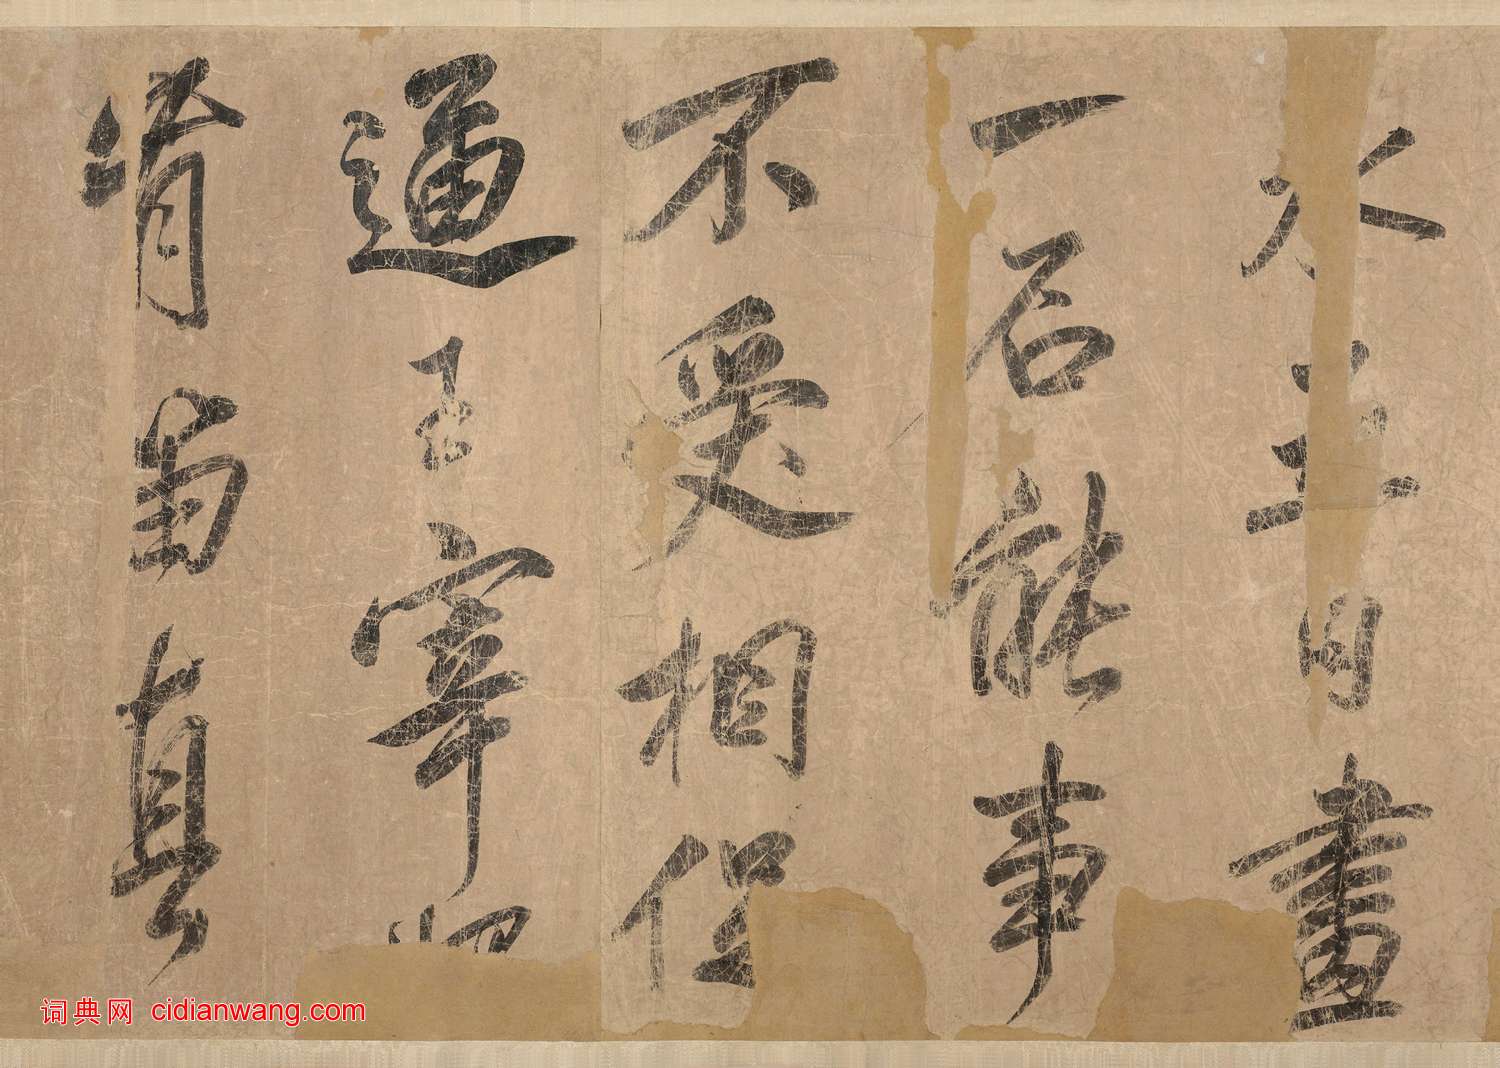 水五日畫
一石能事
不受相促
逼王宰
肯留真
词典网 cidianwang.com